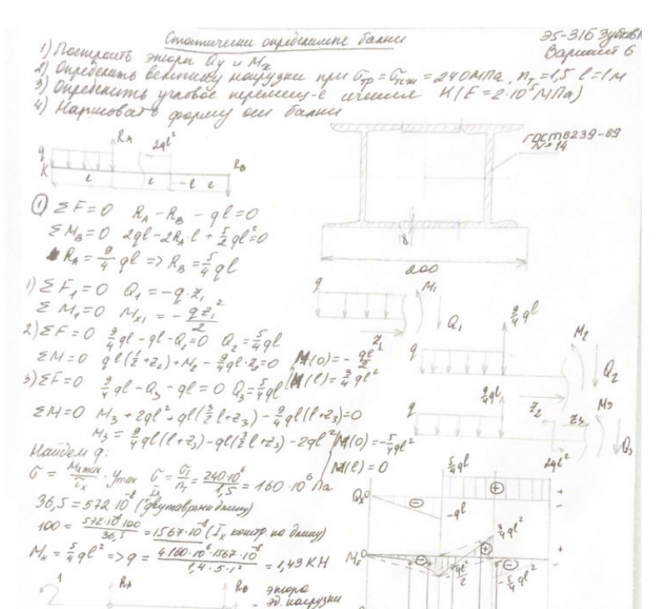 Статически определимые балки
ЭЗ-31Б Зубов
Вариант 6
1) Построить эпюры Qy и Mx
2) Определить величину нагрузки при σтр = σтсж = 240 МПа, nт = 1,5 l = 1м
3) Определить угловое перемещ-е сечения K (E = 2·10⁵ МПа)
4) Нарисовать форму оси балки
RA
2ql²
q
K
RB
l l l
ГОСТ 8239-89
№ 14
8
200
① ΣF=0 RA - RB - ql = 0
ΣMB=0 2ql - 2RA·l + 5/2 ql² = 0
RA = 9/4 ql => RB = 5/4 ql
1) ΣF1=0 Q1 = -q·z1
ΣM1=0 Mx1 = -qz1²/2
2) ΣF=0 9/4 ql - ql - Q2 = 0 Q2 = 5/4 ql
ΣM=0 ql(l/2+z2) + M2 - 9/4 ql·z2 = 0
M(0) = - ql²/2
M(l) = 3/4 ql²
3) ΣF=0 9/4 ql - Q3 - ql = 0 Q3 = 5/4 ql
ΣM=0 M3 + 2ql² + ql(3/2 l+z3) - 9/4 ql(l+z3) = 0
M3 = 9/4 ql(l+z3) - ql(3/2 l+z3) - 2ql²
M(0) = -5/4 ql²
M(l) = 0
q M1 Q1 z1
q 9/4 ql M2 Q2 z2
q 9/4 ql z3 M3 Q3
Найдем q:
σ = Mx max/Jx · ymax σ = σт/nт = 240·10⁶/1,5 = 160·10⁶ Па
36,5 = 572·10⁻⁸ (двутавр на длину)
100 = 572·10⁻⁸·100/36,5 = 1567·10⁻⁸ (Ix контр на длину)
Mx = 5/4 ql² => q = 4·160·10⁶·1567·10⁻⁸/1,4·5·1² = 1,43 КН
Qx 0
5/4 ql
2ql²
-ql
3/4 ql²
Mx 0
-5/4 ql²
1
RA
RB
эпюра
ед. нагрузки